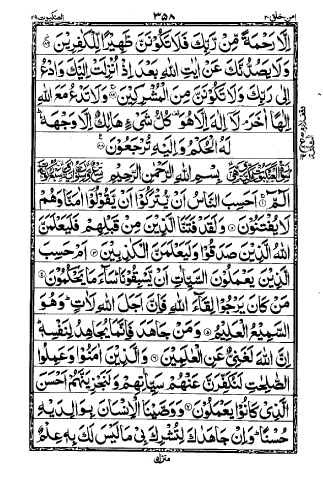 امن خلق ٢٠ ٣٥٨ العنكبوت ٢٩
اِلَّا رَحْمَةً مِّنْ رَّبِّكَ فَلَا تَكُوْنَنَّ ظَهِيْرًا لِّلْكٰفِرِيْنَ
وَلَا يَصُدُّنَّكَ عَنْ اٰيٰتِ اللّٰهِ بَعْدَ اِذْ اُنْزِلَتْ اِلَيْكَ وَادْعُ
اِلٰى رَبِّكَ وَلَا تَكُوْنَنَّ مِنَ الْمُشْرِكِيْنَ وَلَا تَدْعُ مَعَ اللّٰهِ
اِلٰهًا اٰخَرَ لَا اِلٰهَ اِلَّا هُوَ كُلُّ شَىْءٍ هَالِكٌ اِلَّا وَجْهَهٗ
لَهُ الْحُكْمُ وَاِلَيْهِ تُرْجَعُوْنَ
بِسْمِ اللّٰهِ الرَّحْمٰنِ الرَّحِيْمِ
الٓمّٓ اَحَسِبَ النَّاسُ اَنْ يُّتْرَكُوْٓا اَنْ يَّقُوْلُوْٓا اٰمَنَّا وَهُمْ
لَا يُفْتَنُوْنَ وَلَقَدْ فَتَنَّا الَّذِيْنَ مِنْ قَبْلِهِمْ فَلَيَعْلَمَنَّ
اللّٰهُ الَّذِيْنَ صَدَقُوْا وَلَيَعْلَمَنَّ الْكٰذِبِيْنَ اَمْ حَسِبَ
الَّذِيْنَ يَعْمَلُوْنَ السَّيِّاٰتِ اَنْ يَّسْبِقُوْنَا سَآءَ مَا يَحْكُمُوْنَ
مَنْ كَانَ يَرْجُوْا لِقَآءَ اللّٰهِ فَاِنَّ اَجَلَ اللّٰهِ لَاٰتٍ وَهُوَ
السَّمِيْعُ الْعَلِيْمُ وَمَنْ جَاهَدَ فَاِنَّمَا يُجَاهِدُ لِنَفْسِهٖ
اِنَّ اللّٰهَ لَغَنِىٌّ عَنِ الْعٰلَمِيْنَ وَالَّذِيْنَ اٰمَنُوْا وَعَمِلُوا
الصّٰلِحٰتِ لَنُكَفِّرَنَّ عَنْهُمْ سَيِّاٰتِهِمْ وَلَنَجْزِيَنَّهُمْ اَحْسَنَ
الَّذِىْ كَانُوْا يَعْمَلُوْنَ وَوَصَّيْنَا الْاِنْسَانَ بِوَالِدَيْهِ
حُسْنًا وَاِنْ جَاهَدٰكَ لِتُشْرِكَ بِىْ مَا لَيْسَ لَكَ بِهٖ عِلْمٌ
منزل